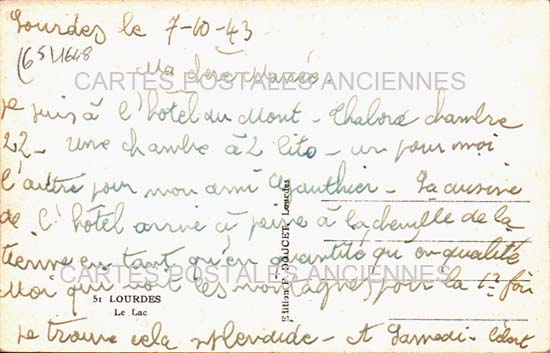 Lourdes le 7-10-43
(65) 1648
Ma chère Mamie.
CARTES POSTALES ANCIENNES
je suis à l'hôtel du Mont-Thabor chambre
22 - une chambre à 2 lits - un pour moi
l'autre pour mon ami Gauthier - La cuisine
de l'hôtel arrive à peine à la cheville de la
tienne en tant qu'en quantité qu'en qualité
CARTES POSTALES ANCIENNES
Moi qui voit les montagnes pour la 1e fois
je trouve cela splendide - A Samedi -
51 LOURDES
Le Lac
Edition P. DOUCET, Lourdes